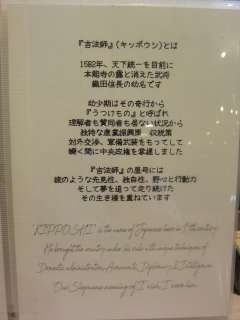 『吉法師』（キッポウシ）とは
1582年、天下統一を目前に
本能寺の露と消えた武将
織田信長の幼名です
幼少期はその奇行から
『うつけもの』とよばれ
理解者も賛同者も居ない状況から
独特な産業振興策、収税策
対外交渉、軍備武装をもってして
瞬く間に中央政権を掌握しました
『吉法師』の屋号には
彼のような先見性、独自性、野心と行動力
そして夢を追って走り続けた
その生き様を重ねています
"KIPPOSHI" is the name of Japanese hero in 15th century